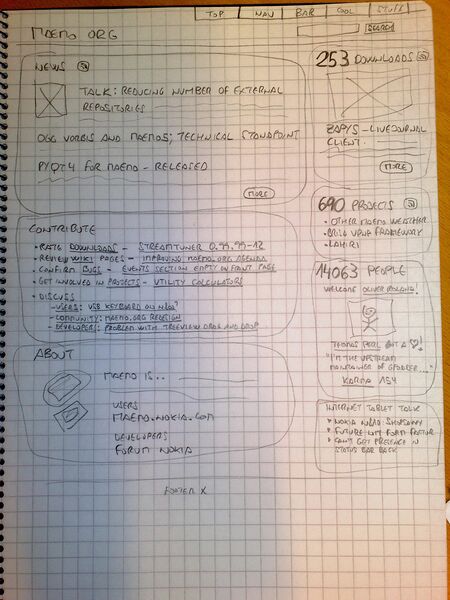 TOP NAV BAR COOL STUFF
MAEMO ORG
SEARCH
NEWS
TALK: REDUCING NUMBER OF EXTERNAL
REPOSITORIES
OGG VORBIS AND MAEMO5; TECHNICAL STANDPOINT
PYQT4 FOR MAEMO - RELEASED
MORE
253 DOWNLOADS
- LIVEJOURNAL
CLIENT.
MORE
690 PROJECTS
• OTHER MAEMO WEATHER
FRAMEWORK
• LAHIRI
CONTRIBUTE
• RATE DOWNLOADS - STREAMTUNER 0.99.99-12
• REVIEW WIKI PAGES - IMPROVING MAEMO.ORG AGENDA
• CONFIRM BUGS - EVENTS SECTION EMPTY ON FRONT PAGE
• GET INVOLVED IN PROJECTS - UTILITY CALCULATORS
• DISCUSS
- USERS: USB KEYBOARD ON N810?
- COMMUNITY: MAEMO.ORG REDESIGN
- DEVELOPERS: PROBLEM WITH TREEVIEW DRAG AND DROP
14063 PEOPLE
WELCOME
THOMAS PERL GOT A ♡!
"I'M THE UPSTREAM
MAINTAINER OF GPODDER..."
KARMA 154
ABOUT
MAEMO IS..
USERS
MAEMO.NOKIA.COM
DEVELOPERS
FORUM NOKIA
INTERNET TABLET TALK
• NOKIA N810: SHOPSAVVY
• FUTURE FORM FACTOR
• CAN'T GET PRESENCE IN
STATUS BAR BACK
FOOTER X